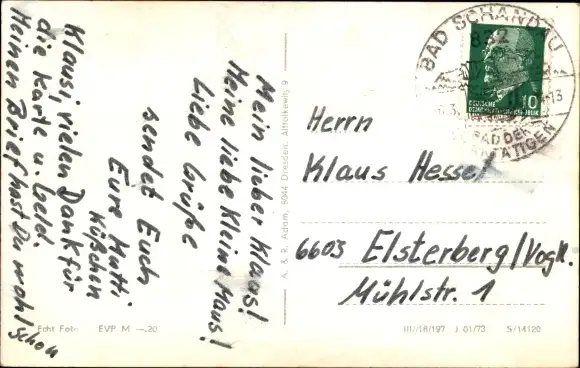 Mein lieber Klaus!
Meine liebe kleine Maus!
Liebe Grüße
sendet Euch
Eure Mutti
Küßchen
Klausi, vielen Dank für
die Karte u. Geld.
Meinen Brief hast Du wohl schon
Echt Foto EVP M —.20
A. & R. Adam, 8044 Dresden, Alttolkewitz 9
BAD SCHANDAU
832
BAD DER
WERKTÄTIGEN
10
DEUTSCHE
DEMOKRATISCHE REPUBLIK
Herrn
Klaus Hessel
6603 Elsterberg/Vogtl.
Mühlstr. 1
III/18/197 J 01/73 S/14120